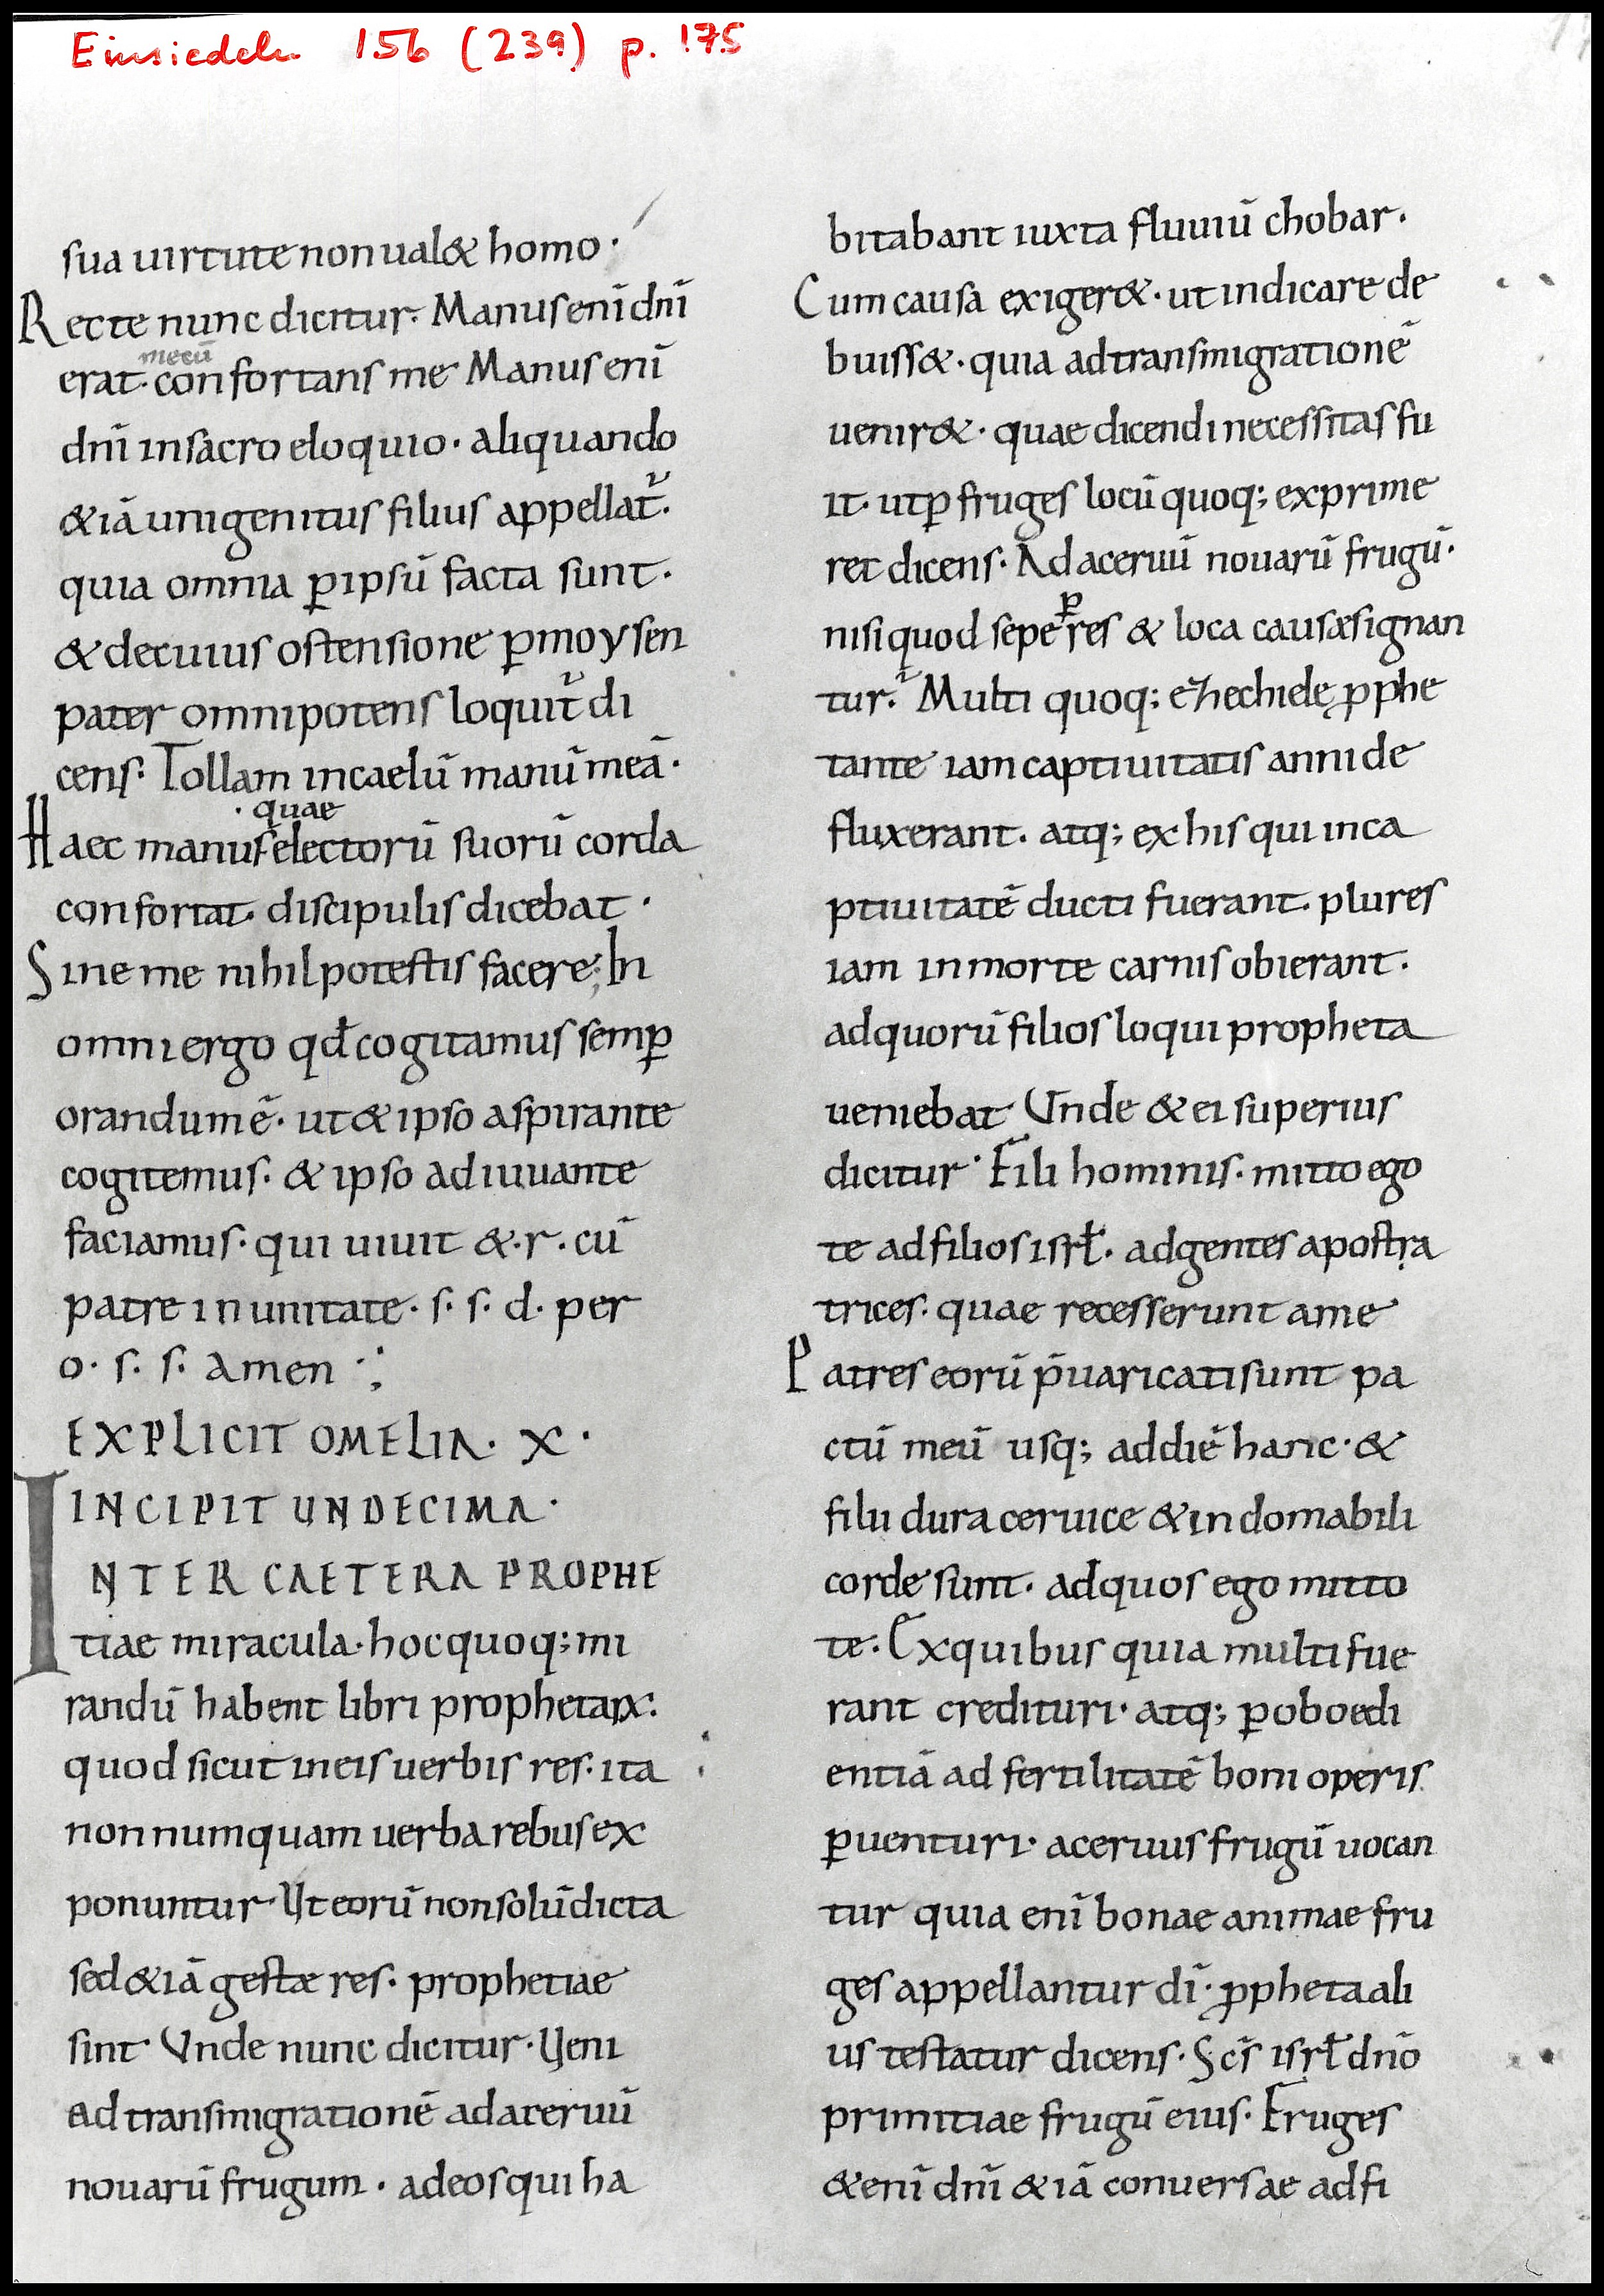 Einsiedeln 156 (239) p. 175
sua uirtute non ual& homo·
Recte nunc dicitur· Manus enī dnī
mecū
erat· confortans me Manus enī
dnī in sacro eloquio· aliquando
&iā unigenitus filius appellat̄·
quia omnia ꝑ ipsū facta sunt·
& de cuius ostensione ꝑ moysen
pater omnipotens loquit̄ di
cens· Tollam in caelū manū meā·
· quae
Haec manus electorū suorū corda
confortat· discipulis dicebat·
Sine me nihil potestis facere; In
omni ergo qđ cogitamus semꝑ
orandum ē· ut & ipso aspirante
cogitemus· & ipso adiuuante
faciamus· qui uiuit &·r·cū
patre in unitate· s· s· d· per
o· s· s· amen ·:
EXPLICIT OMELIA· X·
INCIPIT UNDECIMA·
INTER CAETERA PROPHE
tiae miracula· hoc quoq; mi
randū habent libri prophetaꝝ·
quod sicut in eis uerbis res· ita
non numquam uerba rebus ex
ponuntur· Ut eorū non solū dicta
sed &iā gestæ res· prophetiae
sint Vnde nunc dicitur· Ueni
ad transmigrationē ad aceruū
nouarū frugum· ad eos qui ha
bitabant iuxta fluuiū chobar·
Cum causa exiger&· ut indicare de
buiss&· quia ad transmigrationē
uenir&· quae dicendi necessitas fu
it· ut ꝑ fruges locū quoq; exprime
ret dicens· Ad aceruū nouarū frugū·
ꝑ
nisi quod sepe res & loca causæ signan
tur· Multi quoq; ezechiele ꝓphe
tante iam captiuitatis anni de
fluxerant· atq; ex his qui in ca
ptiuitatē ducti fuerant· plures
iam in morte carnis obierant·
ad quorū filios loqui propheta
ueniebat Vnde & ei superius
dicitur· Fili hominis· mitto ego
te ad filios isrł· ad gentes apostra
trices· quae recesserunt a me
Patres eorū p̄uaricati sunt pa
ctū meū usq; ad diē hanc· &
filii dura ceruice & indomabili
corde sunt· ad quos ego mitto
te· Ex quibus quia multi fue
rant credituri· atq; ꝑ oboedi
entiā ad fertilitatē boni operis
ꝑuenturi· aceruus frugū uocan
tur quia enī bonae animae fru
ges appellantur dī· ꝓpheta ali
us testatur dicens· Scs̄ isrł dnō
primitiae frugū eius· Fruges
&enī dnī &iā conuersae ad fi